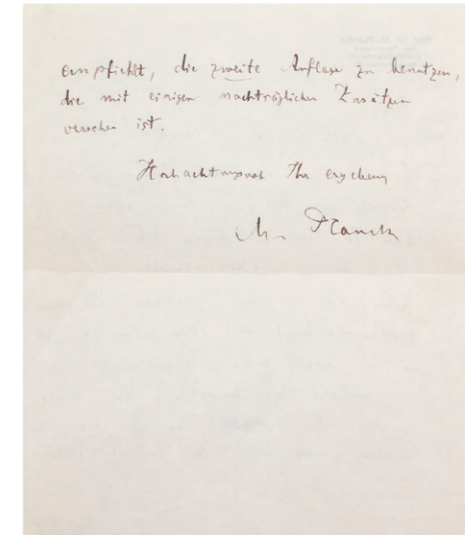 empfiehlt, die zweite Auflage zu benutzen,
die mit einigen nachträglichen Zusätzen
versehen ist.
Hochachtungsvoll Ihr ergebener
M. Planck